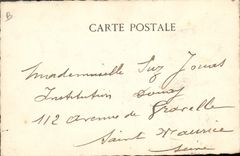 B
CARTE POSTALE
Mademoiselle Suz Jouas
Institution
112 avenue de Gravelle
Saint Maurice
Seine